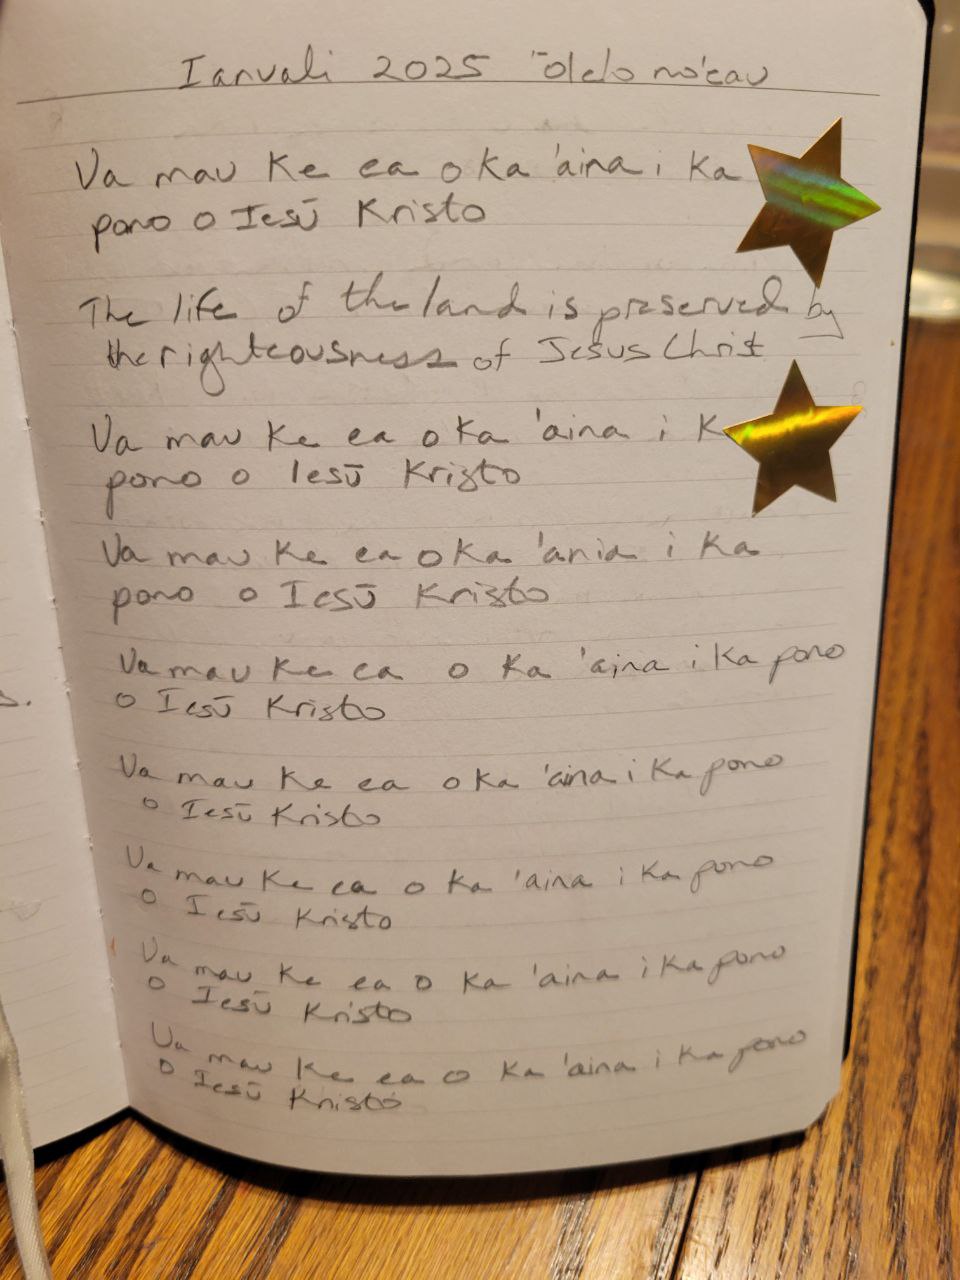 Ianuali 2025 'Ōlelo no'eau
Ua mau Ke ea o Ka 'aina i Ka
pono o Iesū Kristo
The life of the land is preserved by
the righteousness of Jesus Christ
Ua mau Ke ea o Ka 'aina i K
pono o Iesū Kristo
Ua mau Ke ea o Ka 'ania i Ka
pono o Iesū Kristo
Ua mau Ke ea o Ka 'aina i Ka pono
o Iesū Kristo
Ua mau Ke ea o Ka 'aina i Ka pono
o Iesū Kristo
Ua mau Ke ea o Ka 'aina i Ka pono
o Iesū Kristo
Ua mau Ke ea o Ka 'aina i Ka pono
o Iesū Kristo
Ua mau Ke ea o Ka 'aina i Ka pono
o Iesū Kristo